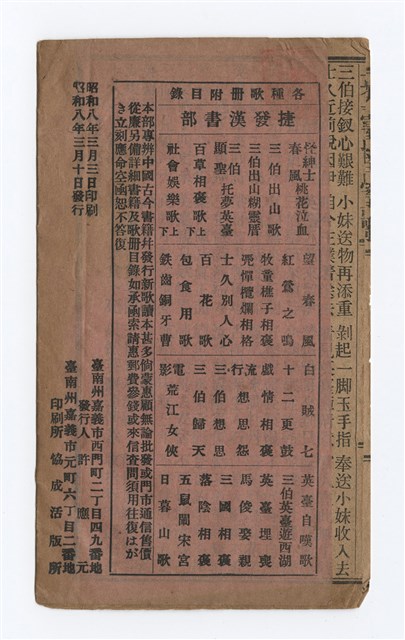 三伯接釵心艱難　小妹送物再添重　剝起一脚玉手指　奉送小妹收入去
各種歌册附目錄
捷發漢書部
怪紳士　桃花泣血
春風
三伯出山歌
三伯出山糊靈厝
三伯　托夢英臺
顯聖
百草相褒歌上下
社會娛樂歌上下
望春風
紅鶯之鳴
牧童樵子相褒
覽爛相格
士久別人心
百花歌
包食用歌
鐵齒銅牙曹
白賊七
十二更鼓
戲情相褒
流行　想思怨
想思
三伯歸天
電影　荒江女俠
英臺自嘆歌
三伯英臺遊西湖
英臺埋喪
馬俊娶親
三國相褒
落陰相褒
五鼠鬧宋宮
日暮山歌
本部專辨中國古今書籍幷發行新歌讀本甚多倘蒙惠顧無論批發或門市通信售價
從廉另備詳細書籍及歌册目錄如承函索請惠郵費參錢或來信查問須用往復はが
き立刻應命空函恕不答復
昭和八年三月三日印刷
昭和八年三月十日發行
臺南州嘉義市西門町二丁目四九番地
發行人　許應元
臺南州嘉義市元町六丁目二番地
印刷所　協成活版所